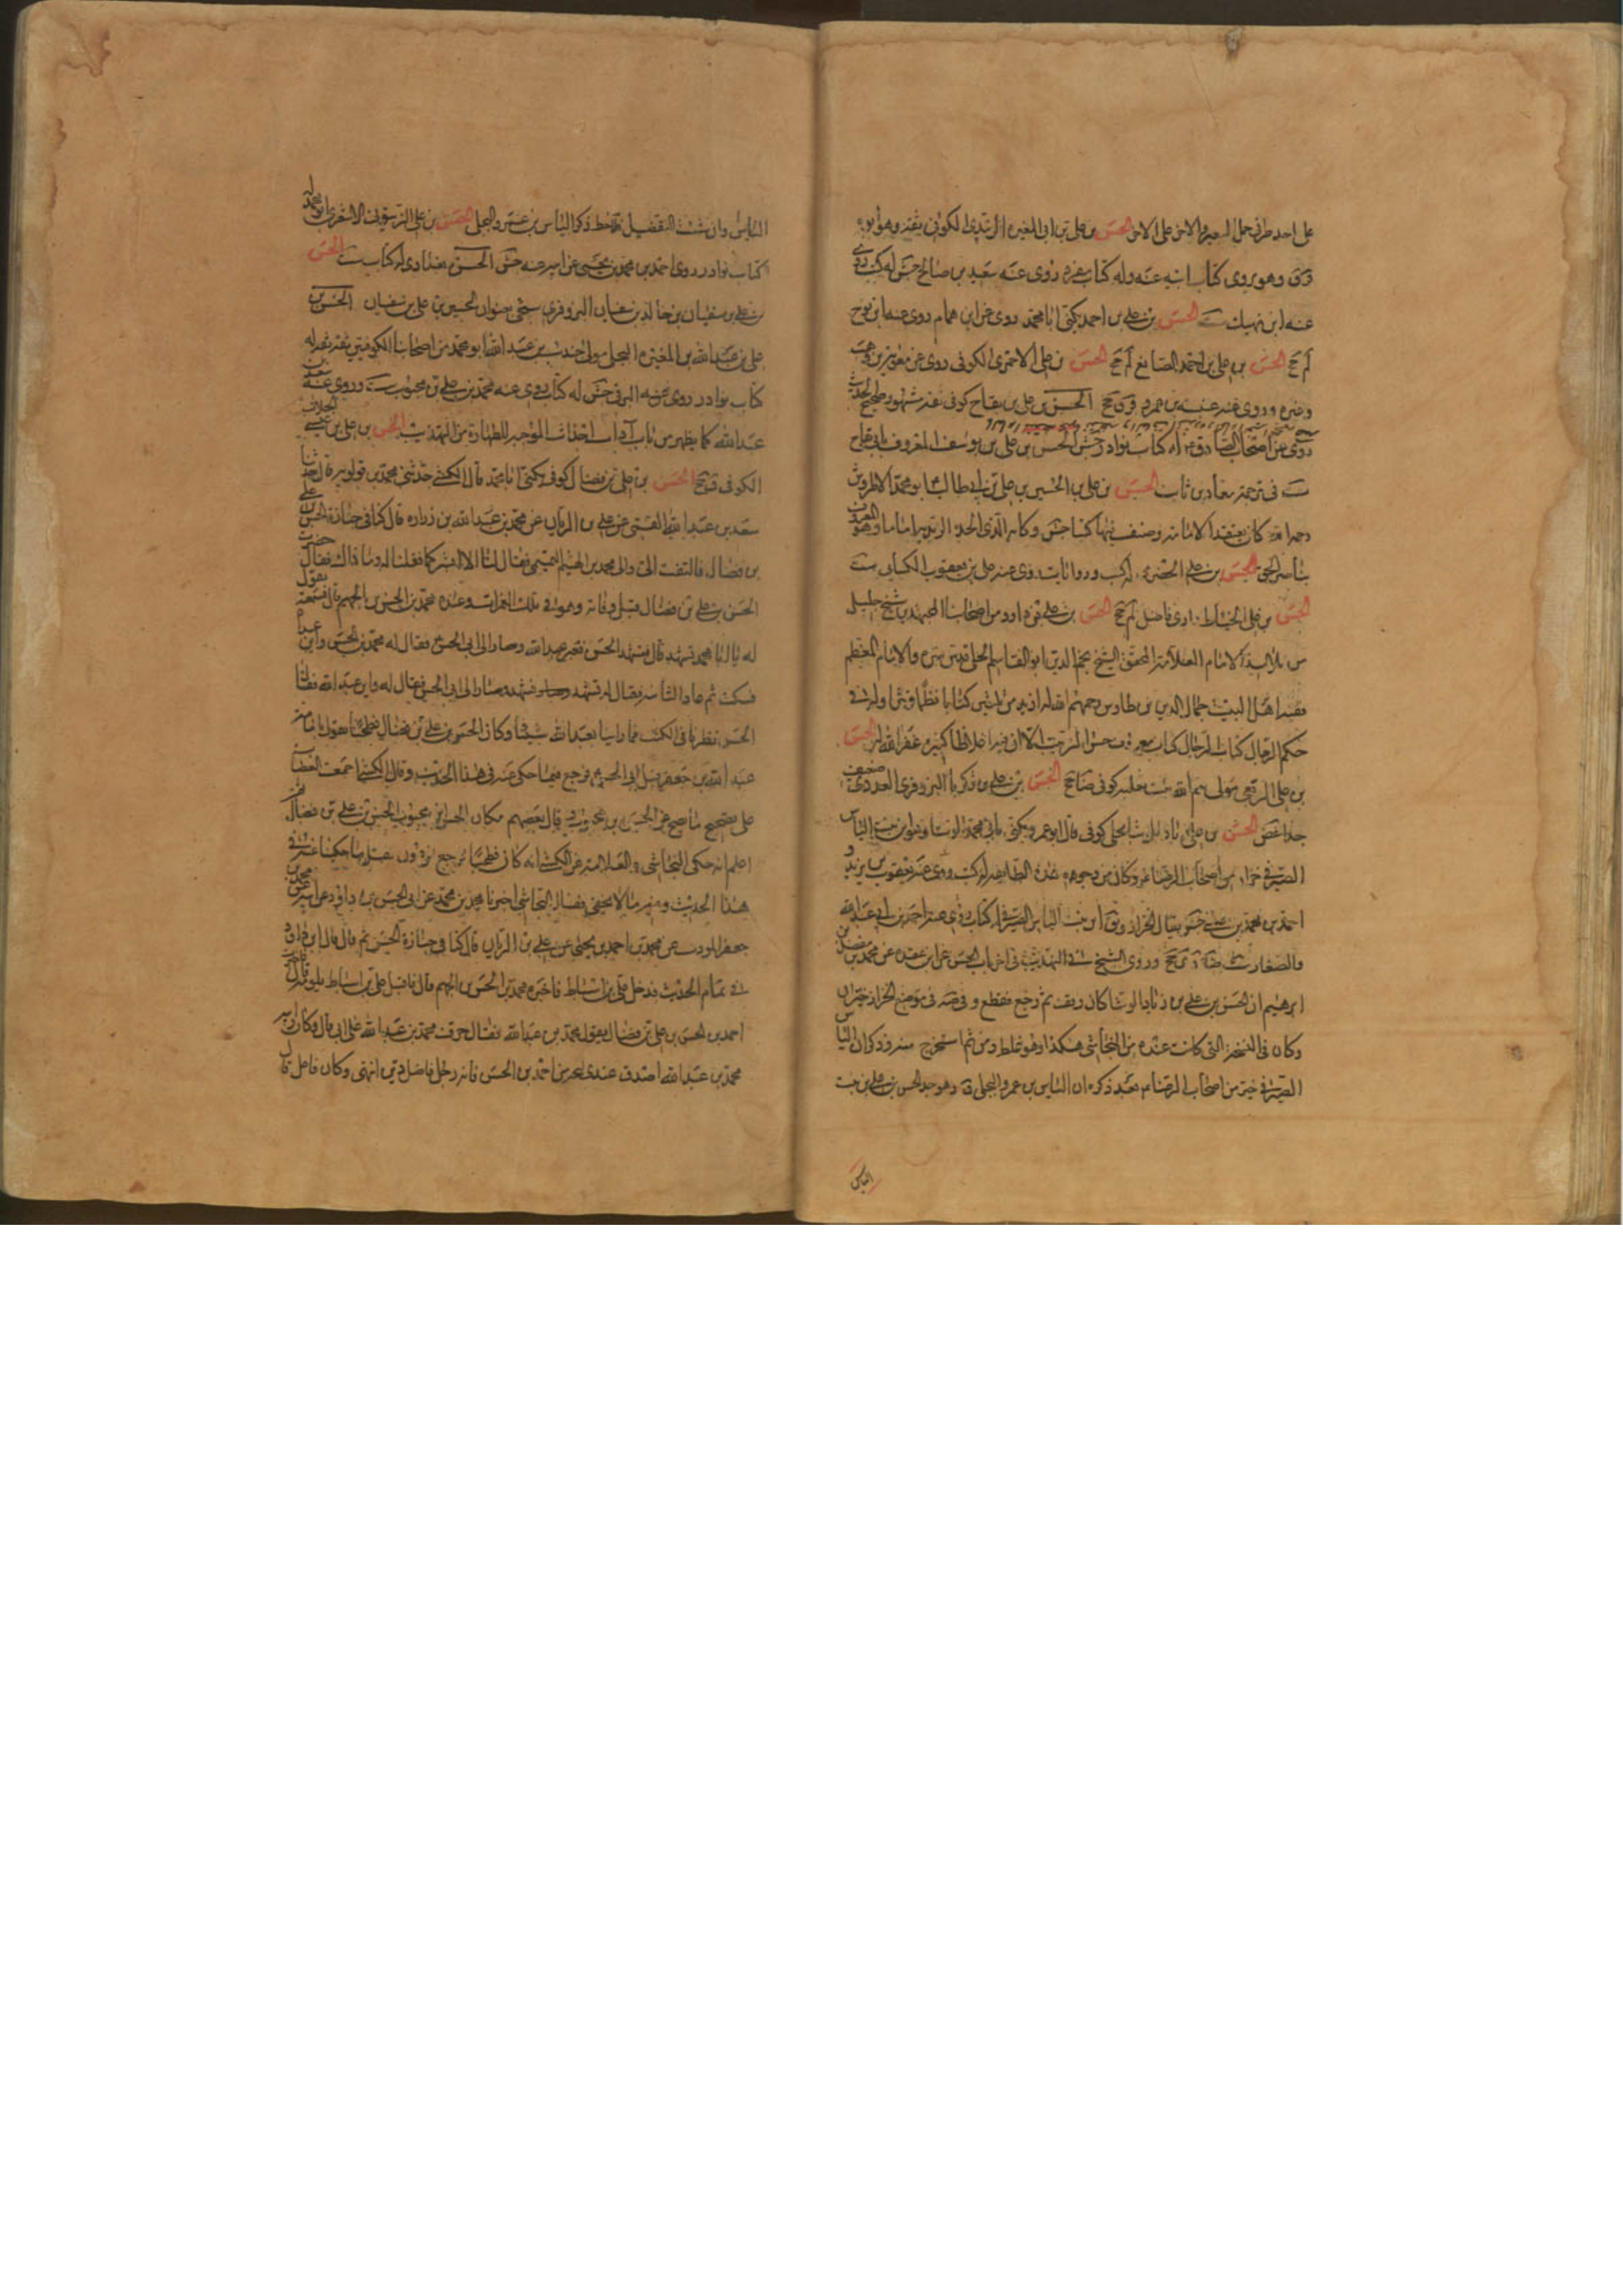 على الحسن بن علي بن ابي المغيرة الزبيدي الكوفي ثقة وهو وابوه
وهو يروي كتاب ابيه عنه وله كتاب مفرد روى عنه سعيد بن صالح جش له كتب روى
عنه ابن نهيك ست الحسن بن علي بن احمد يكنى ابا محمد روى عن ابن همام روى عنه ابن نوح
لم جخ الحسن بن علي بن احمد الصايغ لم جخ الحسن بن علي الاحمري الكوفي روى عن
وغيره وروى عنه عنبسة بن عمرو ق جخ الحسن بن علي بن بقاح كوفي ثقة مشهور صحيح الحديث
روى عن اصحاب الصادق ع له كتاب نوادر جش الحسن بن علي بن يوسف المعروف بابن بقاح
ست في ترجمة معاذ بن ثابت الحسن بن علي بن الحسين بن علي بن ابي طالب ابو محمد الاطروش
رحمه الله كان يعتقد الامامة وصنف فيها كتبا جش وكانه الذي اتخذه الزيدية اماما وهو المعروف
بناصر الحق الحسن بن علي الحضرمي له كتب وروايات روى عنه علي بن يعقوب الكسائي ست
الحسن بن علي الخياط رازي فاضل لم جخ الحسن بن علي بن داود من اصحابنا المجتهدين شيخ جليل
من تلامذة الامام العلامة المحقق الشيخ نجم الدين ابو القاسم الحلي قدس سره والامام المعظم
فقيه اهل البيت جمال الدين بن طاوس رحمهم الله له ازيد من ثلثين كتابا نظما ونثرا وله في
علم الرجال كتاب الرجال كتاب معروف حسن الترتيب الا ان فيه اغلاطا كثيرة غفر الله له الحسن
بن علي الربعي مولى تيم الله بن ثعلبة كوفي الحسن بن علي بن زكريا البزوفري العدوي ضعيف
جدا غض الحسن بن علي بن زياد الوشا بجلي كوفي قال ابو عمرو ويكنى بابي محمد الوشا وهو ابن بنت الياس
الصيرفي خزاز من اصحاب الرضا ع وكان من وجوه هذه الطايفة له كتب روى عنه يعقوب بن يزيد و
احمد بن محمد بن عيسى جش يقال الخزاز وهو ابن بنت الياس الصيرفي له كتاب روى عنه احمد بن ابي عبد الله
والصفار ست ضا جخ وروى الشيخ في التهذيب عن ابن عقدة عن محمد بن مفضل بن
ابرهيم ان الحسن بن علي بن زياد الوشا كان وقف ثم رجع فقطع وفي صه في موضع الخزاز خيران
وكان في النسخة التي كانت عنده من النجاشي هكذا وهو غلط ومن ثم استخرج منه وذكر ان الياس
الصيرفي خير من اصحاب الرضا ع بعد ذكره ان الياس بن عمرو البجلي وهو جد الحسن بن علي بن بنت
الياس
الياس وان شئت التفصيل فلاحظ ذكر الياس بن عمرو البجلي الحسن بن علي الزيتوني الاشعري ابو محمد له
كتاب نوادر روى احمد بن محمد بن يحيى عن ابيه عنه جش الحسن بغدادي له كتاب ست الحسن
بن علي بن سفيان بن خالد بن سفيان البزوفري سيجيء بعنوان الحسين بن علي بن سفيان الحسن بن
علي بن عبد الله بن المغيرة البجلي مولى جندب بن عبد الله ابو محمد من اصحابنا الكوفيين ثقة ثقة له
كتاب نوادر روى عنه البرقي جش له كتاب روى عنه محمد بن علي بن محبوب ست وروى عنه سعد بن
عبد الله كما يظهر من باب آداب الاحداث الموجبة للطهارة من التهذيب الحسن بن علي بن عيسى الجلاب
الكوفي ق جخ الحسن بن علي بن فضال كوفي يكنى ابا محمد قال الكشي حدثني محمد بن قولويه قال حدثنا
سعد بن عبد الله القمي عن علي بن الريان عن محمد بن عبد الله بن زرارة قال كنا في جنازة الحسن بن علي
بن فضال فالتفت الي والى محمد بن الهيثم التميمي فقال لنا الا ابشركما فقلنا له وما ذاك فقال حضرت
الحسن بن علي بن فضال قبل وفاته وهو في تلك الغمرات وعنده محمد بن الحسن بن الجهم قال فسمعته يقول
له يا ابا محمد تشهد قال فتشهد الحسن فعبر عبد الله وصار الى ابي الحسن ع فقال له محمد بن الحسن واين عبد الله
فسكت ثم عاد الثانية فقال له تشهد فتشهد وصار الى ابي الحسن فقال له واين عبد الله فقال
الحسن نظرنا في الكتب فما راينا لعبد الله شيئا وكان الحسن بن علي بن فضال فطحيا يقول بامامة
عبد الله بن جعفر قبل ابي الحسن ع فرجع فيما حكي عنه في هذا الحديث وقال الكشي اجمعت العصابة
على تصحيح ما يصح عن الحسن بن محبوب وقال بعضهم مكان الحسن بن محبوب الحسن بن علي بن فضال
اعلم انه حكى النجاشي والعلامة عن الكشي انه كان فطحيا ثم رجع
هذا الحديث وفيه ما لا يخفى فقال النجاشي اخبرنا محمد بن محمد عن ابي الحسن بن داود عن ابيه عن محمد بن
جعفر المؤدب عن محمد بن احمد بن يحيى عن علي بن الريان قال كنا في جنازة الحسن ثم قال قال ابن داود
في تمام الحديث فدخل علي بن اسباط فاخبره محمد بن الحسن بن الجهم قال فاقبل علي بن اسباط يلومه قال فاخبرت
احمد بن الحسن بن علي بن فضال بقول محمد بن عبد الله فقال حرف محمد بن عبد الله على ابي قال وكان والله
محمد بن عبد الله اصدق عندي لهجة من احمد بن الحسن فانه رجل فاضل دين انتهى وكان فاضل